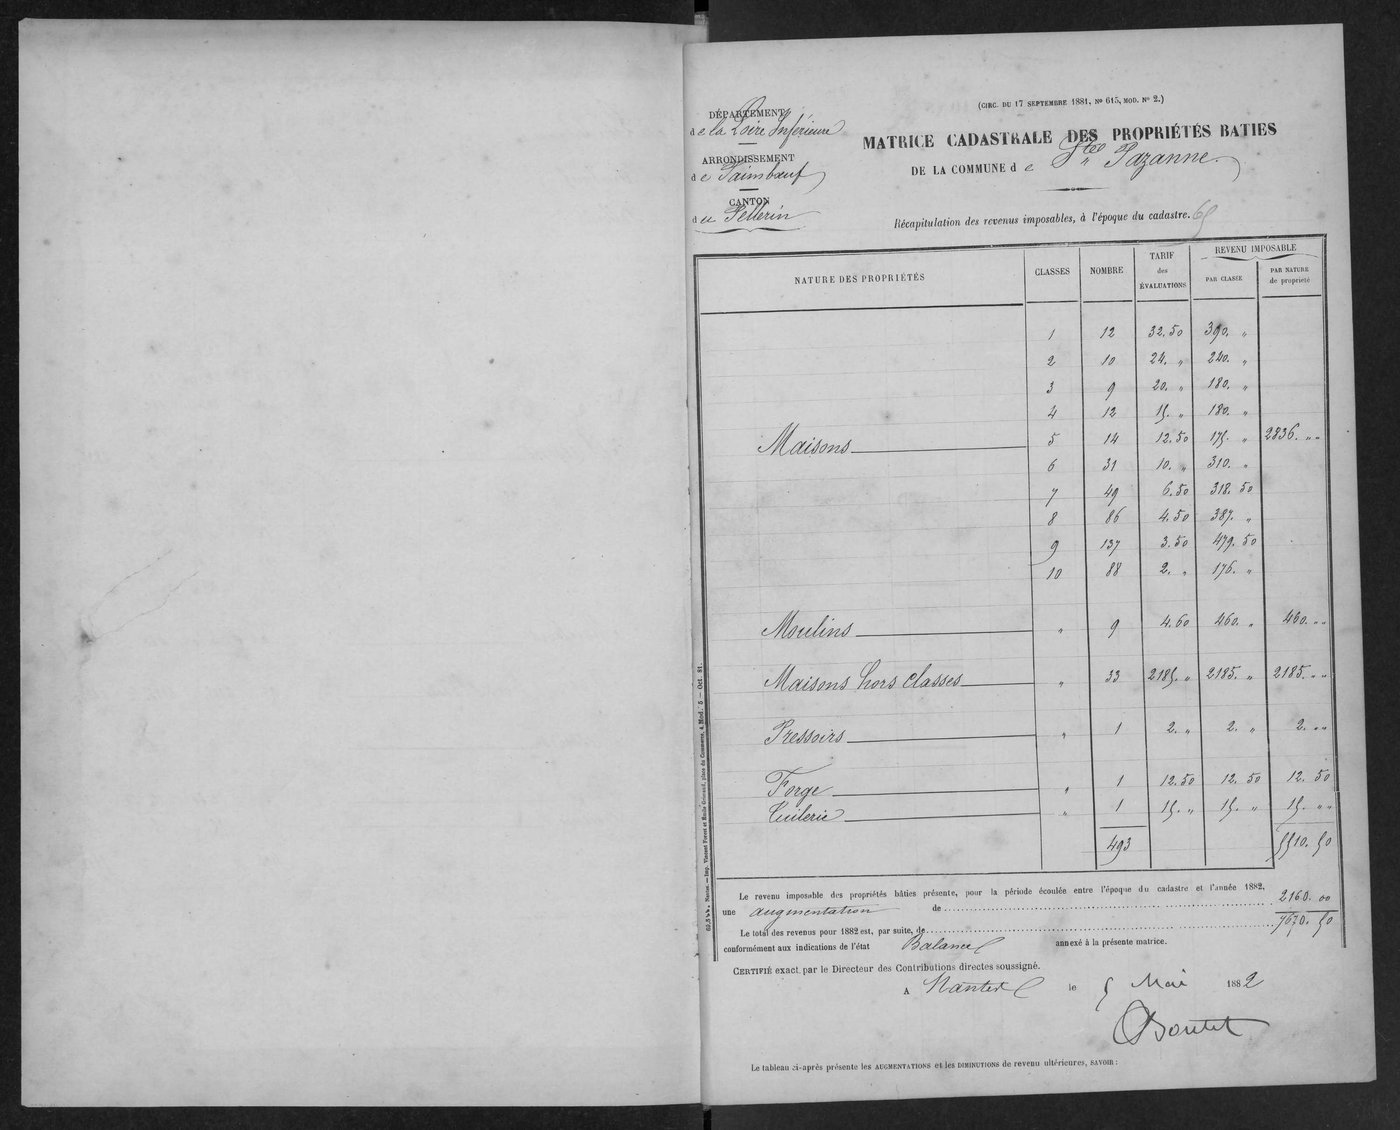 (CIRC. DU 17 SEPTEMBRE 1881, No 615, MOD. No 2.)
DÉPARTEMENT
de la Loire Inférieure
ARRONDISSEMENT
de Paimbœuf
CANTON
du Pellerin
MATRICE CADASTRALE DES PROPRIÉTÉS BATIES
DE LA COMMUNE de Ste Pazanne.
Récapitulation des revenus imposables, à l'époque du cadastre. 65
NATURE DES PROPRIÉTÉS CLASSES NOMBRE TARIF des ÉVALUATIONS REVENU IMPOSABLE PAR CLASSE PAR NATURE de propriété
1 12 32.50 390. "
2 10 24. " 240. "
3 9 20. " 180. "
4 12 15. " 180. "
Maisons 5 14 12.50 175. " 2836. " "
6 31 10. " 310. "
7 49 6.50 318. 50
8 86 4.50 387. "
9 137 3.50 479. 50
10 88 2. " 176. "
Moulins " 9 4.60 460. " 460. " "
Maisons hors classes " 33 2185. " 2185. " 2185. " "
Pressoirs " 1 2. " 2. " 2. " "
Forge " 1 12.50 12. 50 12. 50
Tuilerie " 1 15. " 15. " 15. " "
493 5510. 50
Le revenu imposable des propriétés bâties présente, pour la période écoulée entre l'époque du cadastre et l'année 1882,
une augmentation de 2160. 00
Le total des revenus pour 1882 est, par suite, de 7670. 50
conformément aux indications de l'état Balance annexé à la présente matrice.
CERTIFIÉ exact par le Directeur des Contributions directes soussigné.
A Nantes le 5 Mai 1882
Boutet
Le tableau ci-après présente les AUGMENTATIONS et les DIMINUTIONS de revenu ultérieures, SAVOIR :
Nantes. — Imp. Vincent Forest et Émile Grimaud, place du Commerce, 4. Mod. 5 — Oct. 81.